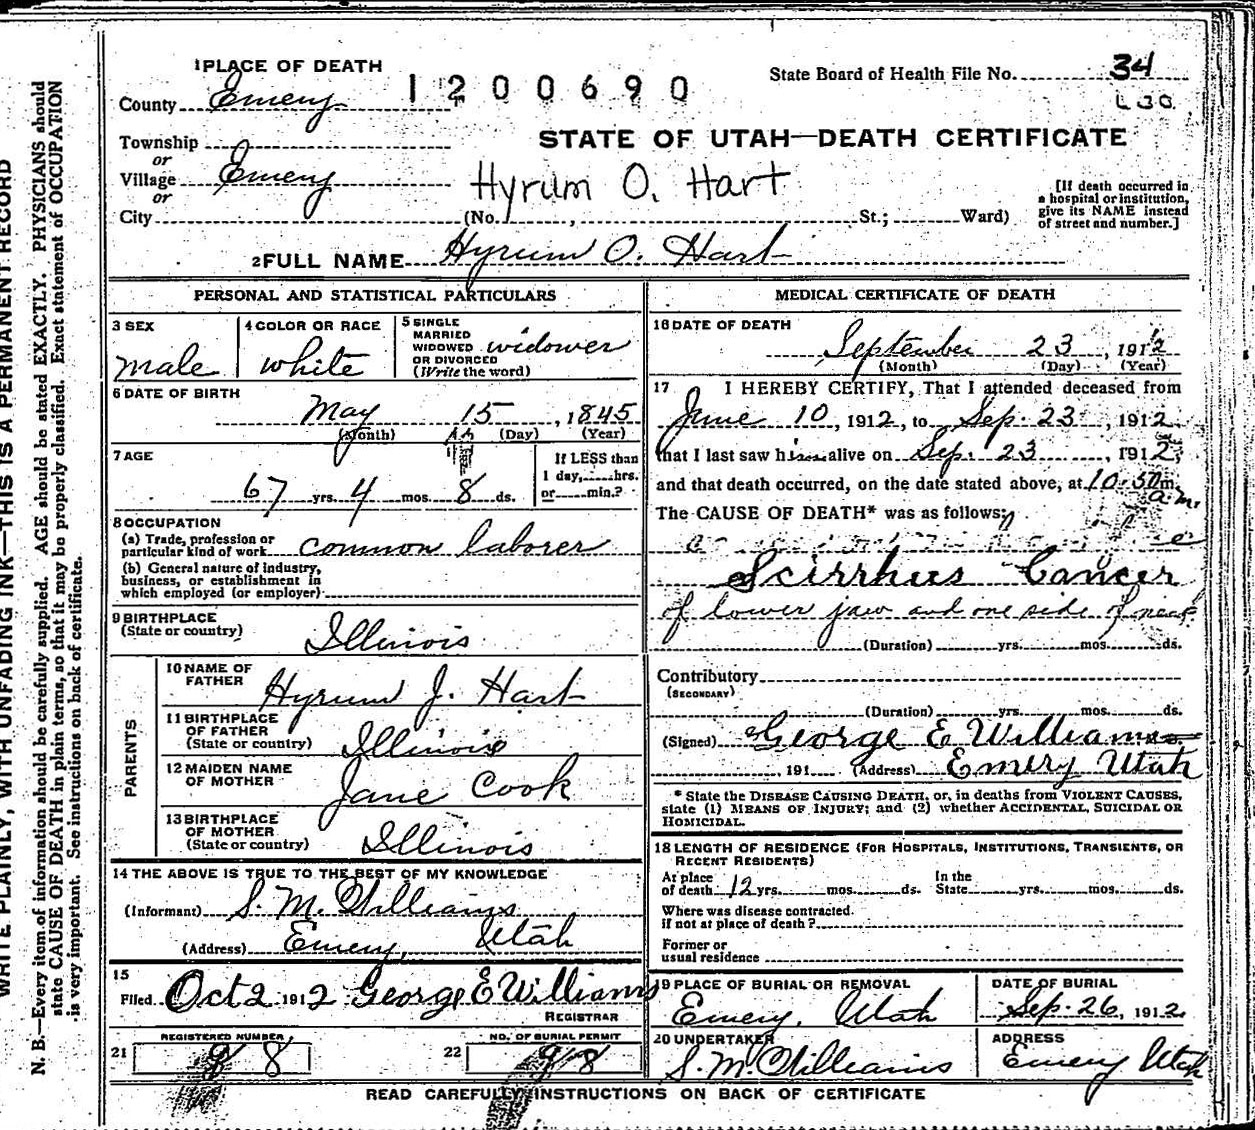 WRITE PLAINLY, WITH UNFADING INK—THIS IS A PERMANENT RECORD
N. B.—Every item of information should be carefully supplied. AGE should be stated EXACTLY. PHYSICIANS should
state CAUSE OF DEATH in plain terms, so that it may be properly classified. Exact statement of OCCUPATION
is very important. See instructions on back of certificate.
1 PLACE OF DEATH
1200690
State Board of Health File No. 34
County Emery
STATE OF UTAH—DEATH CERTIFICATE
Township
or
Village Emery
or
Hyrum O. Hart
City (No. , St.; Ward)
[If death occurred in
a hospital or institution,
give its NAME instead
of street and number.]
2 FULL NAME Hyrum O. Hart
PERSONAL AND STATISTICAL PARTICULARS
3 SEX
male
4 COLOR OR RACE
white
5 SINGLE
MARRIED
WIDOWED
OR DIVORCED
(Write the word)
widower
6 DATE OF BIRTH
May 15, 1845
(Month) (Day) (Year)
7 AGE
67 yrs. 4 mos. 8 ds.
If LESS than
1 day, hrs.
or min.?
8 OCCUPATION
(a) Trade, profession or
particular kind of work common laborer
(b) General nature of industry,
business, or establishment in
which employed (or employer)
9 BIRTHPLACE
(State or country) Illinois
PARENTS
10 NAME OF
FATHER Hyrum J. Hart
11 BIRTHPLACE
OF FATHER
(State or country) Illinois
12 MAIDEN NAME
OF MOTHER Jane Cook
13 BIRTHPLACE
OF MOTHER
(State or country) Illinois
14 THE ABOVE IS TRUE TO THE BEST OF MY KNOWLEDGE
(Informant) S. M. Williams
(Address) Emery, Utah
15
Filed Oct 2 1912 George E Williams
REGISTRAR
21 REGISTERED NUMBER
8
22 NO. OF BURIAL PERMIT
8
MEDICAL CERTIFICATE OF DEATH
16 DATE OF DEATH
September 23, 1912
(Month) (Day) (Year)
17 I HEREBY CERTIFY, That I attended deceased from
June 10, 1912, to Sep. 23, 1912
that I last saw him alive on Sep. 23, 1912,
and that death occurred, on the date stated above, at 10:50 m.
a.m.
The CAUSE OF DEATH* was as follows:
Scirrhus Cancer
of lower jaw and one side of neck
(Duration) yrs. mos. ds.
Contributory
(SECONDARY)
(Duration) yrs. mos. ds.
(Signed) George E Williams
, 191 (Address) Emery Utah
* State the DISEASE CAUSING DEATH, or, in deaths from VIOLENT CAUSES,
state (1) MEANS OF INJURY; and (2) whether ACCIDENTAL, SUICIDAL OR
HOMICIDAL.
18 LENGTH OF RESIDENCE (FOR HOSPITALS, INSTITUTIONS, TRANSIENTS, OR
RECENT RESIDENTS)
At place
of death 12 yrs. mos. ds.
In the
State yrs. mos. ds.
Where was disease contracted.
if not at place of death?
Former or
usual residence
19 PLACE OF BURIAL OR REMOVAL
Emery, Utah
DATE OF BURIAL
Sep. 26, 1912
20 UNDERTAKER
S. M. Williams
ADDRESS
Emery Utah
READ CAREFULLY INSTRUCTIONS ON BACK OF CERTIFICATE